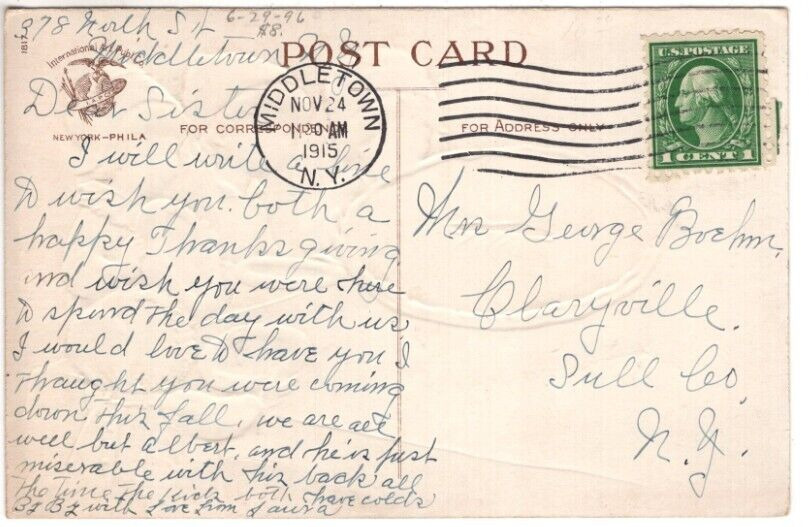 378 North St
6-29-96
Middletown N.Y.
1817
International Art Publ.
POST CARD
NEW YORK-PHILA
FOR CORRESPONDENCE
FOR ADDRESS ONLY
MIDDLETOWN
NOV 24
AM
1915
N.Y.
U.S. POSTAGE
1 CENT 1
Dear Sister
I will write a line
to wish you both a
happy Thanksgiving
and wish you were here
to spend the day with us
I would love to have you I
thaught you were coming
down this fall, we are all
well but albert, and he is just
miserable with his back all
the time the kids both have colds
By By with Love from Laura
Mrs George Boehm.
Claryville.
Sull Co.
N.Y.